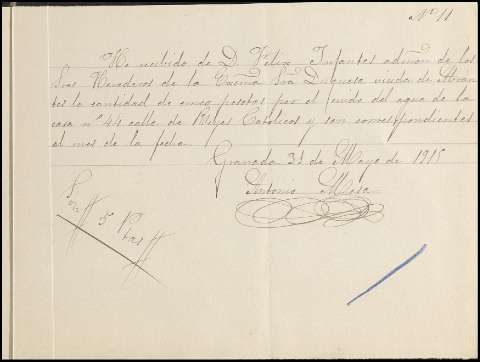 Nº 11
He recibido de D. Felix Infantes admon de los
Sres Herederos de la Excma Sra Duquesa viuda de Abran
tes la cantidad de cinco pesetas por el fluido del agua de la
casa nº 44 calle de Reyes Catolicos y son correspondientes
al mes de la fecha.
Granada 31 de Mayo de 1915
Antonio Mesa
Son # 5 Ptas #